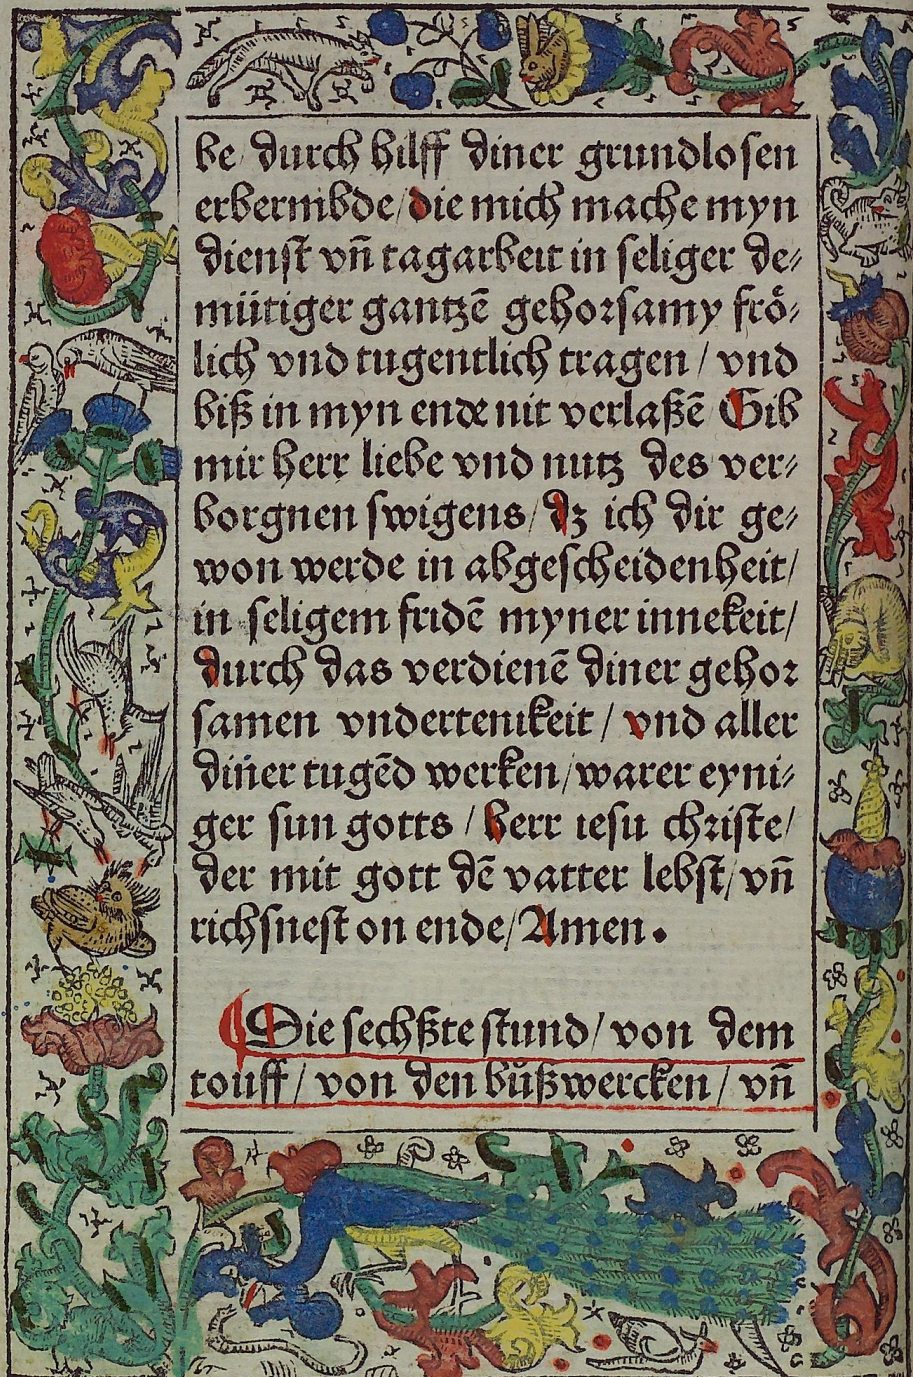 be durch hilff diner grundlosen
erbermbde/ die mich mache myn
dienst vn̄ tagarbeit in seliger de⸗
mütiger gantzē gehorsamy froͤ⸗
lich vnd tugentlich tragen / vnd
biß in myn ende nit verlaßē Gib
mir herr liebe vnd nutz des ver⸗
borgnen swigens/ dz ich dir ge⸗
won werde in abgescheidenheit/
in seligem fridē myner innekeit/
durch das verdienē diner gehor
samen vndertenikeit / vnd aller
diner tugēd werken/ warer eyni⸗
ger sun gotts / herr iesu christe/
der mit gott dē vatter lebst/ vn̄
richsnest on ende/ Amen.
Die sechßte stund/ von dem
touff/ von den buͦßwercken/ vn̄